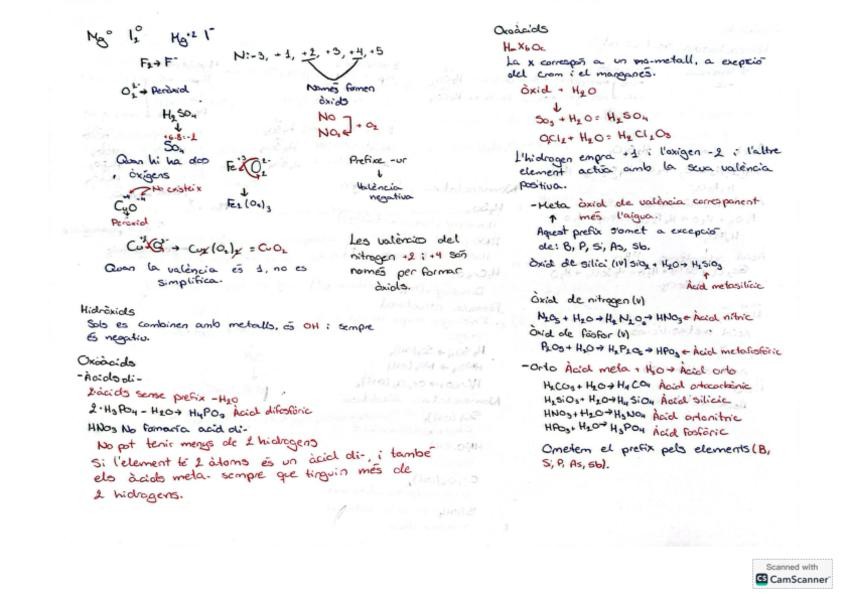 Mg⁰ I₂⁰ Mg⁺² I⁻
F₂→F⁻
O₂²⁻→ Peròxid
H₂SO₄
↓
+6-8=-2
SO₄
Quan hi ha dos
oxígens
No existeix
CuO
Peròxid
Fe⁺³ O₂²⁻
↓
Fe₂(O₂)₃
→ Cu₂(O₂)₂ = CuO₂
Quan la valència és 2, no es
simplifica.
N: -3, +1, +2, +3, +4, +5
Només formen
òxids
NO
NO₂ + O₂
Prefixe -ur
↓
València
negativa
Les valències del
nitrogen +2 i +4 són
només per formar
òxids.
Hidròxids
Sols es combinen amb metalls, és OH i sempre
és negatiu.
Oxoàcids
-Àcids di-
2àcids sense prefix -H₂O
2·H₃PO₄ - H₂O → H₄P₂O₇ Àcid difosfòric
HNO₃ No formaria àcid di-
No pot tenir menys de 2 hidrogens
Si l'element té 2 àtoms és un àcid di-, i també
els àcids meta- sempre que tinguin més de
2 hidrogens.
Oxoàcids
HₐXbOc
La x correspon a un no-metall, a excepció
del crom i el manganès.
Òxid + H₂O
↓
SO₃ + H₂O = H₂SO₄
OCl₂ + H₂O = H₂Cl₂O₂
L'hidrogen empra +1 i l'oxigen -2 i l'altre
element actua amb la seua valència
positiva.
-Meta òxid de valència corresponent
↑ més l'aigua.
Aquest prefix s'omet a excepció
de: B, P, Si, As, Sb.
Òxid de silici (IV) SiO₂ + H₂O → H₂SiO₃
↑
Àcid metasilícic
Òxid de nitrogen (V)
N₂O₅ + H₂O → H₂N₂O₆ → HNO₃ ← Àcid nítric
Òxid de fòsfor (V)
P₂O₅ + H₂O → H₂P₂O₆ → HPO₃ ← Àcid metafosfòric
-Orto Àcid meta + H₂O → Àcid orto
H₂CO₃ + H₂O → H₄CO₄ Àcid ortocarbònic
H₂SiO₃ + H₂O → H₄SiO₄ Àcid silícic
HNO₃ + H₂O → H₃NO₄ Àcid ortonítric
HPO₃ + H₂O → H₃PO₄ Àcid fosfòric
Ometem el prefix pels elements (B,
Si, P, As, Sb).
Scanned with
CS CamScanner